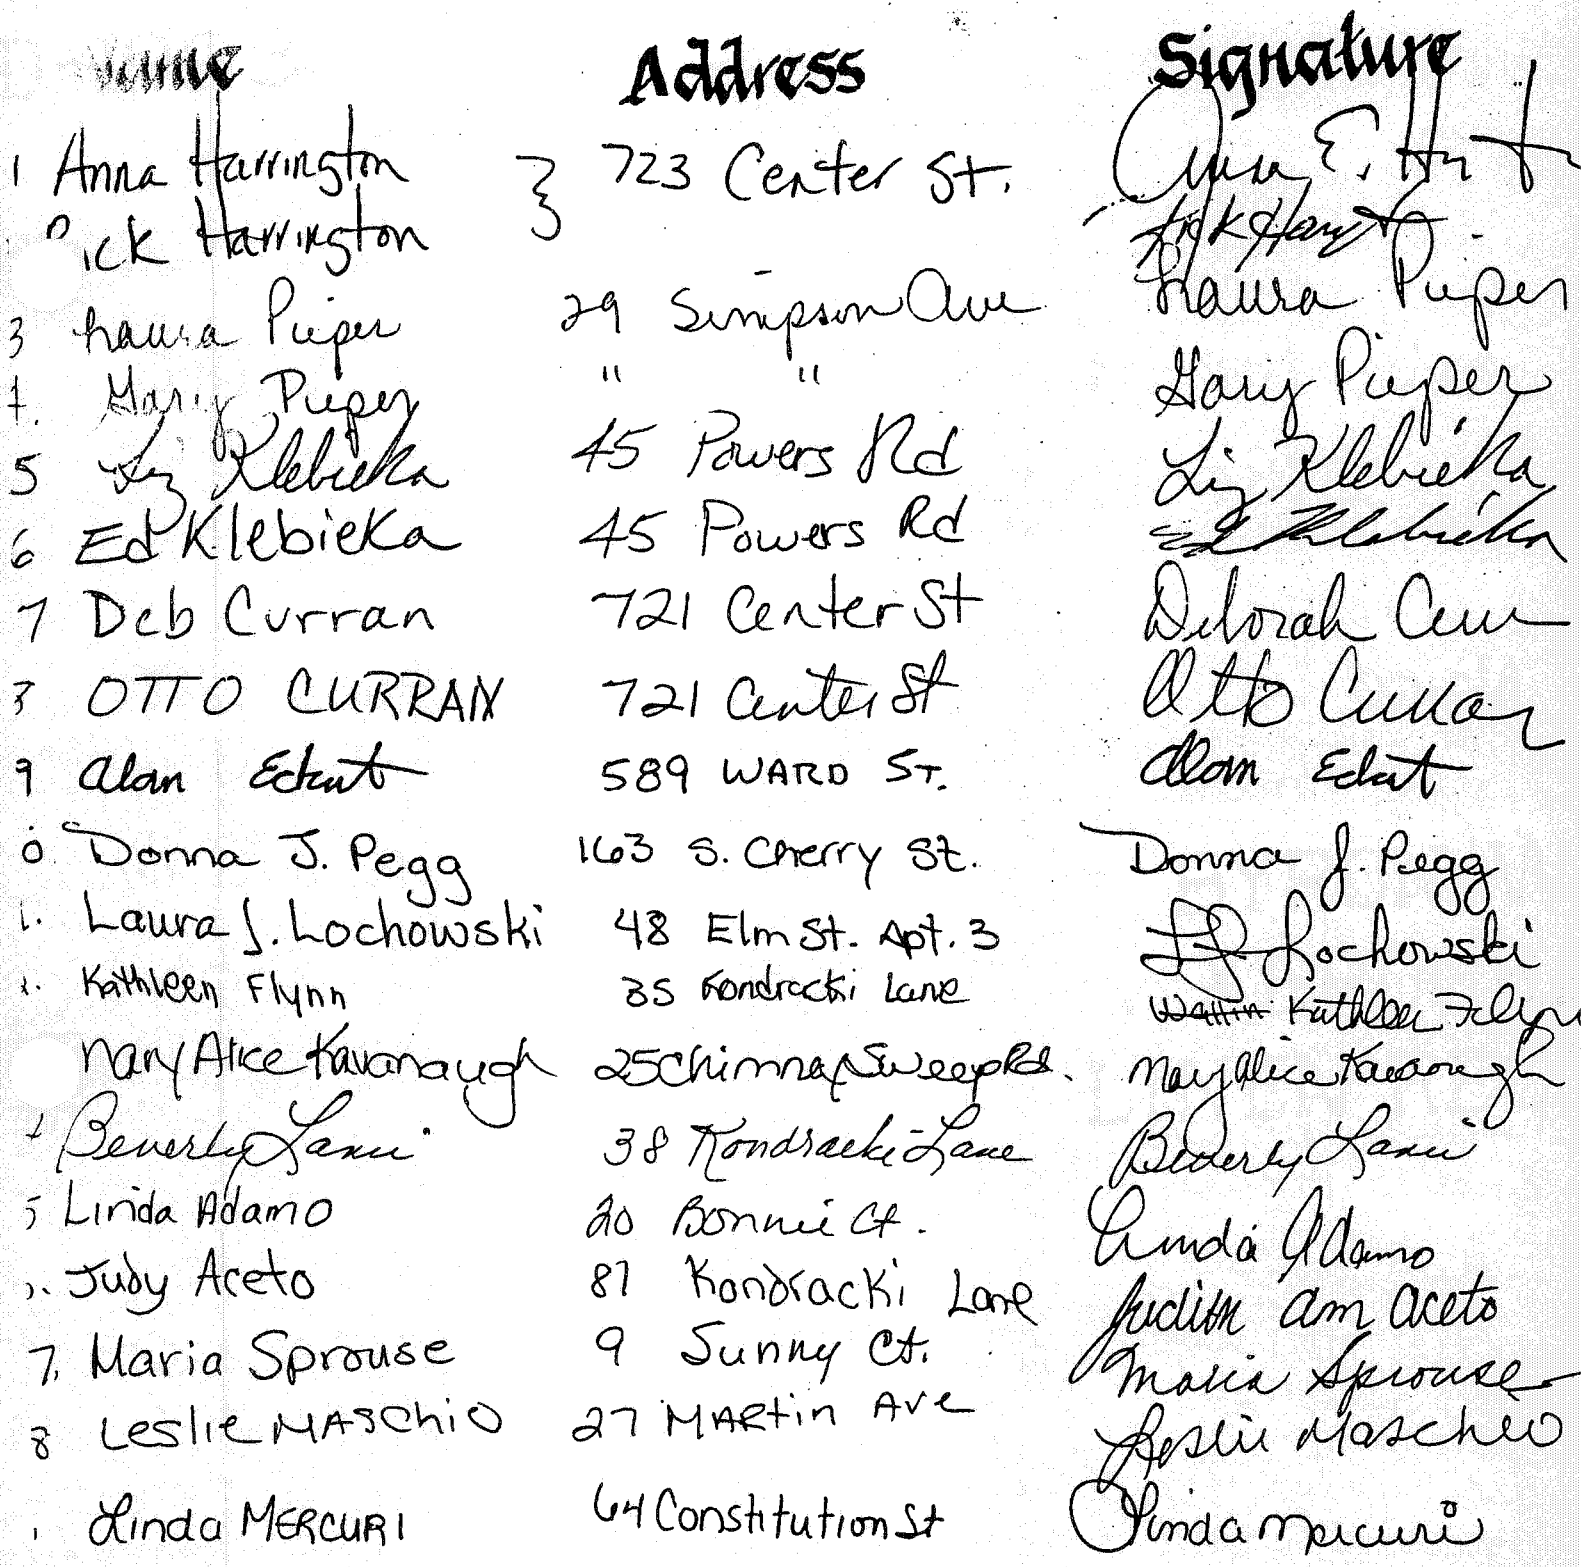 Name Address Signature
1 Anna Harrington } 723 Center St. Anna E. H
ick Harrington
3 Laura Pieper 29 Simpson Ave Laura Pieper
4. Gary Pieper " " Gary Pieper
5 Liz Klebieka 45 Powers Rd Liz Klebieka
6 Ed Klebieka 45 Powers Rd Ed Klebieka
7 Deb Curran 721 Center St Deborah Curran
8 OTTO CURRAN 721 Center St Otto Curran
9 Alan Eckert 589 WARD ST. Alan Eckert
0. Donna J. Pegg 163 S. Cherry St. Donna J. Pegg
1. Laura J. Lochowski 48 Elm St. Apt. 3 LJ Lochowski
Kathleen Flynn 35 Kondracki Lane Kathleen Flynn
Mary Alice Kavanaugh 25 Chimney Sweep Rd. Mary Alice Kavanaugh
Beverly Lanni 38 Kondracki Lane Beverly Lanni
5 Linda Adamo 20 Bonnie Ct. Linda Adamo
Judy Aceto 87 Kondracki Lane Judith Ann Aceto
7. Maria Sprouse 9 Sunny Ct. Maria Sprouse
8 Leslie MASChiO 27 MARtin Ave Leslie Maschio
Linda MERCURI 64 Constitution St Linda Mercuri